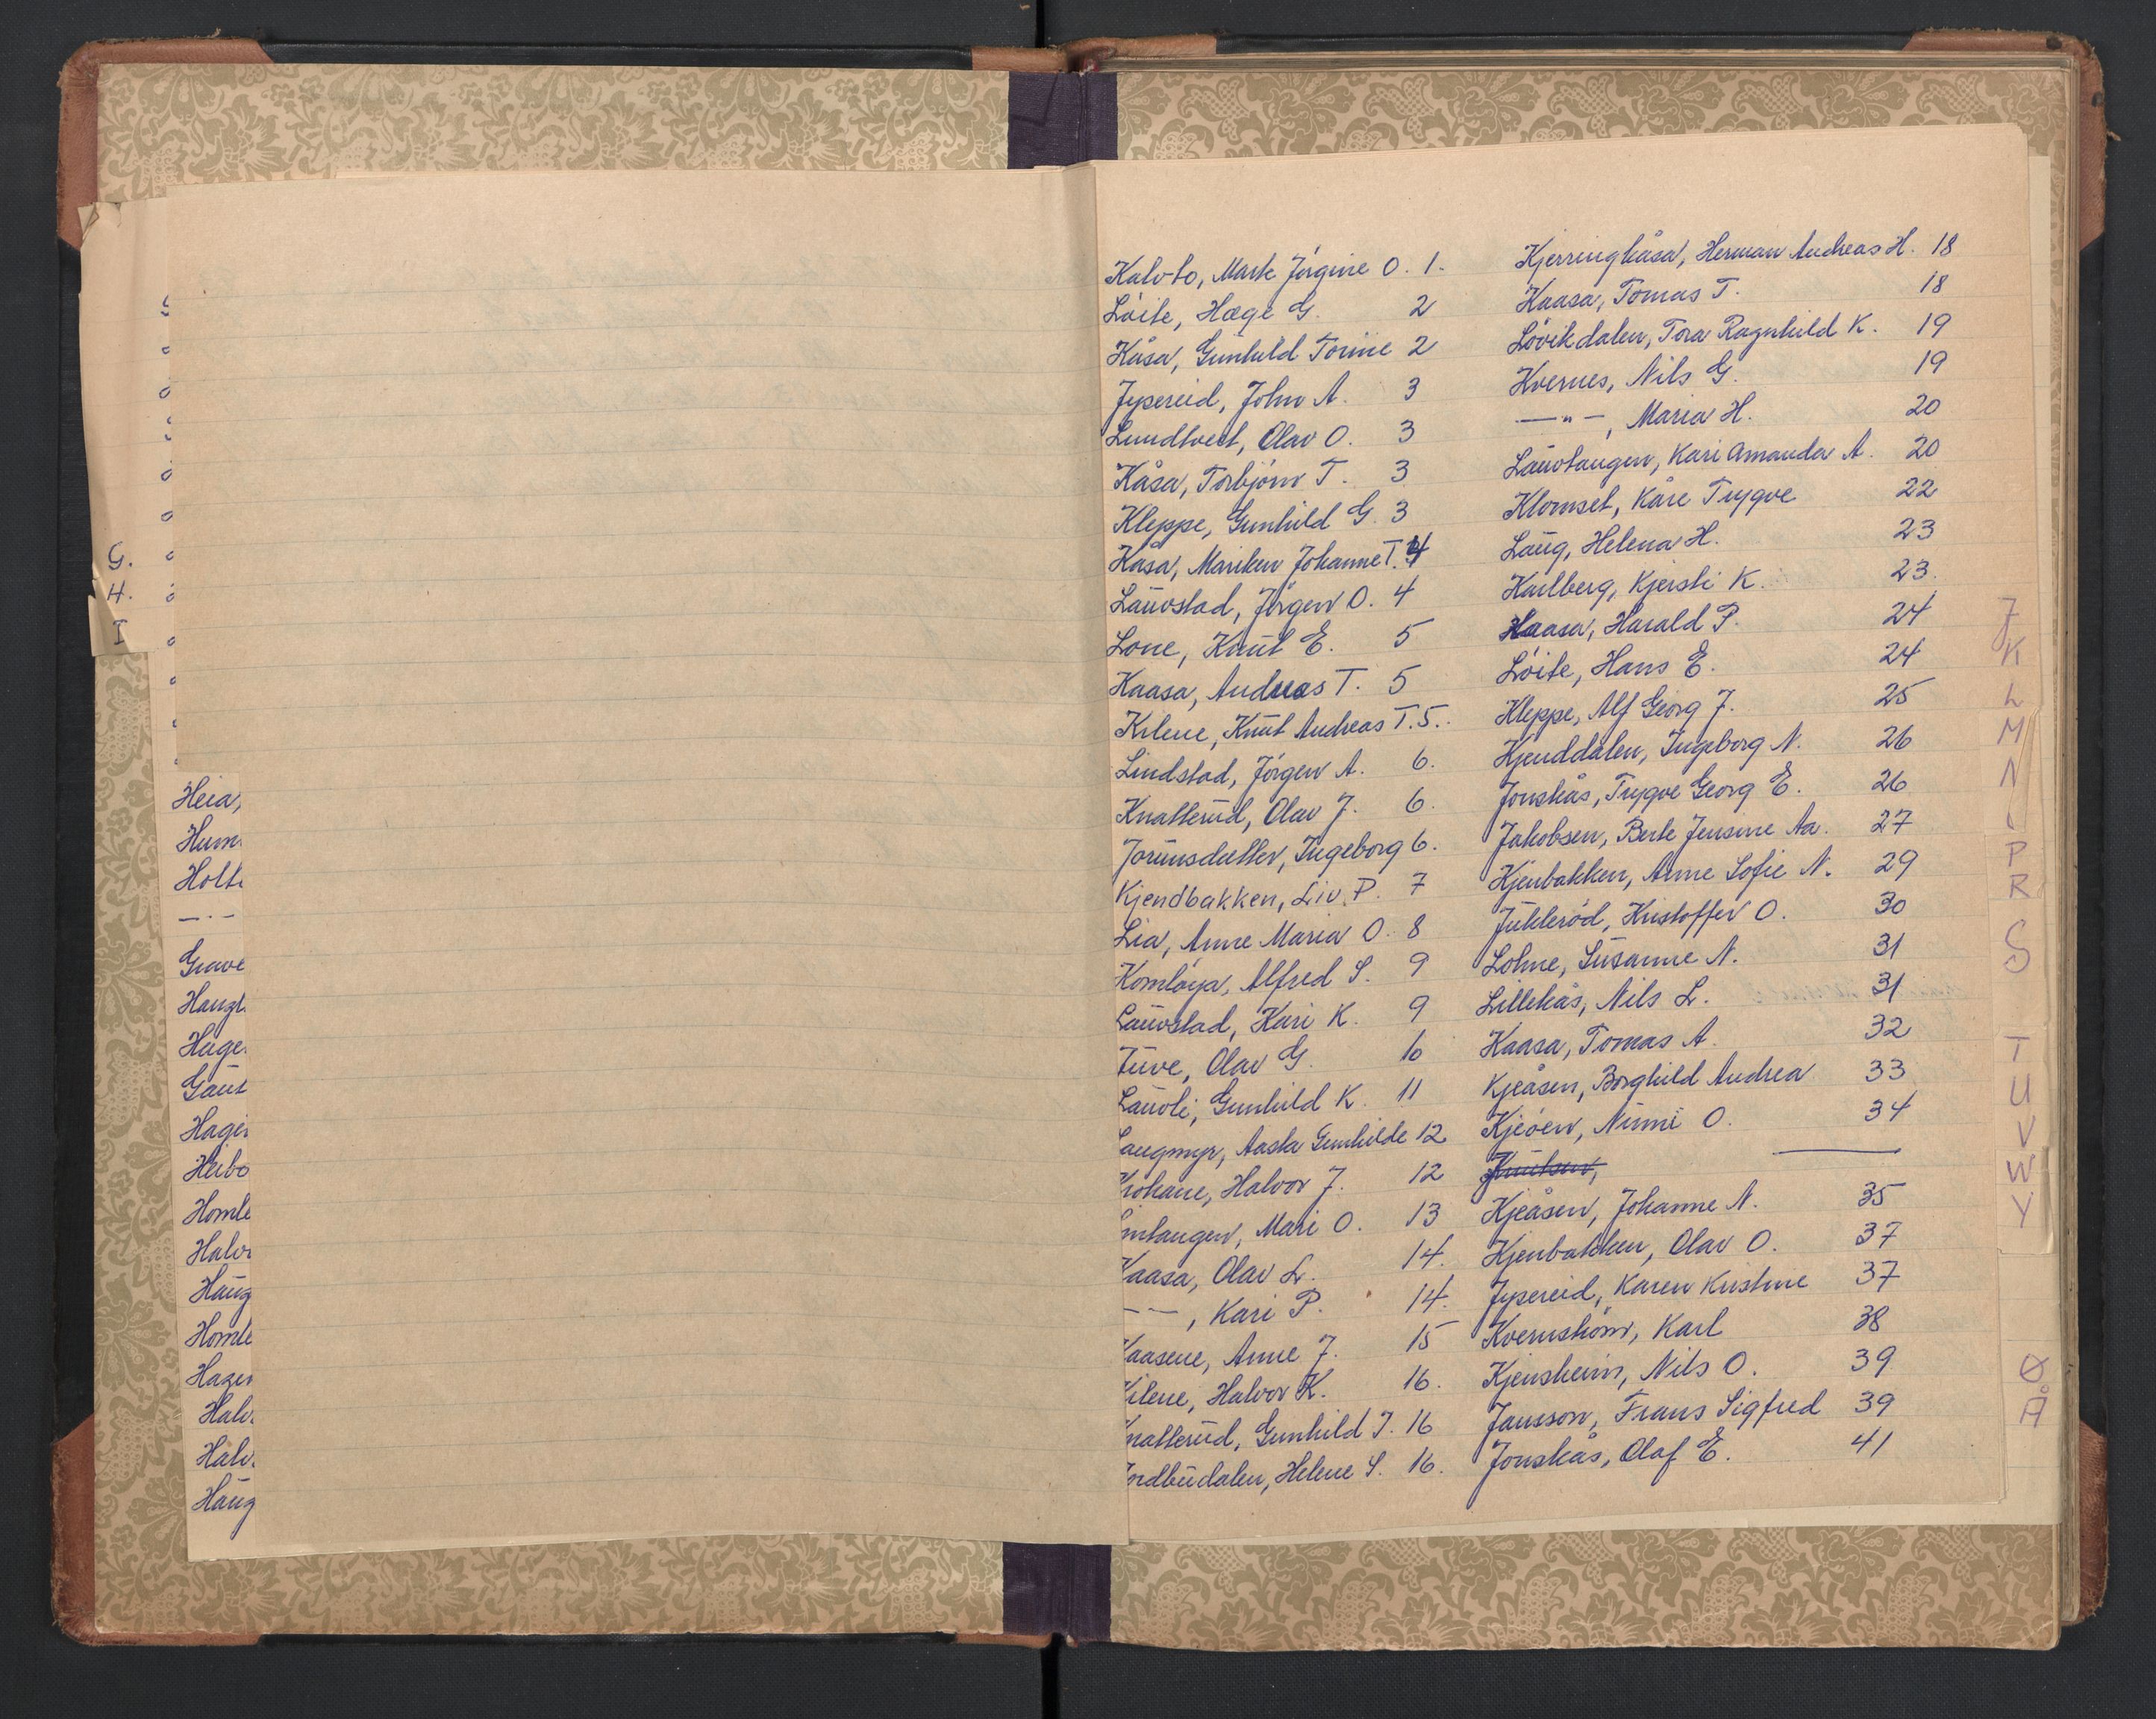 G.
H.
I
Heia,
Hum
Holt
— · —
Grave
Haugt
Hage
Gaut
Hagen
Heibo
Homle
Halv
Haug
Homle
Hagen
Halv.
Halv.
Haug
Kalvbo, Marte Jørgine O. 1.
Løite, Hæge G. 2
Kåsa, Gunhild Torine 2
Jypereid, John A. 3
Lundtveit, Olav O. 3
Kåsa, Torbjørn T. 3
Kleppe, Gunhild G. 3
Kåsa, Mariken Johanne T. 4
Lauvstad, Jørgen O. 4
Lone, Knut E. 5
Kaasa, Andreas T. 5
Kilene, Knut Andreas T. 5.
Lindstad, Jørgen A. 6.
Knatterud, Olav J. 6.
Jorunsdatter, Ingeborg 6.
Kjendbakken, Liv. P. 7
Lia, Anne Maria O. 8
Komløya, Alfred S. 9
Lauvstad, Kari K. 9
Juve, Olav G. 10
Lauvli, Gunhild K. 11
Laugmyr, Aasta Gunhilde 12
Krokane, Halvor J. 12
mtangen, Mari O. 13
Kaasa, Olav L. 14.
— — , Kari P. 14.
Kaasene, Anne J. 15
Kilene, Halvor K. 16.
Knatterud, Gunhild J. 16
ndbudalen, Helene S. 16.
Kjerringkåsa, Herman Andreas H. 18
Kaasa, Tomas T. 18
Løvikdalen, Tora Ragnhild K. 19
Kvernes, Nils G. 19
— " — , Maria H. 20
Lauvtangen, Kari Amanda A. 20
Klomset, Kåre Trygve 22
Laug, Helena H. 23
Karlberg, Kjersti K. 23.
Kaasa, Harald P. 24
Løite, Hans E. 24
Kleppe, Alf Georg J. 25
Kjenddalen, Ingeborg N. 26
Jonskås, Trygve Georg E. 26
Jakobsen, Berte Jensine Aa. 27
Kjenbakken, Anne Sofie N. 29
Juklerød, Kristoffer O. 30
Lohne, Susanne N. 31
Lillekås, Nils L. 31
Kaasa, Tomas A. 32
Kjeåsen, Borghild Andrea 33
Kjeøen, Nimi O. 34
Knutsen,
Kjeåsen, Johanne N. 35
Kjenbakken, Olav O. 37
Jypereid, Karen Kristine 37
Kvernstrøm, Karl 38
Kjensheim, Nils O. 39
Jansson, Frans Sigfred 39
Jonskås, Olaf E. 41
J
K
L
M
N
P
R
S
T
U
V
W
Y
Ø
Å